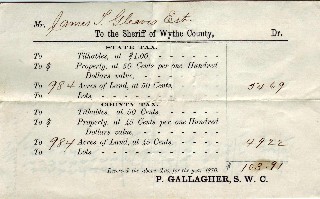 Mr. James T. Gleaves Est.
To the Sheriff of Wythe County, Dr.
STATE TAX.
To Tithables, at $1.00
To $ Property, at 50 Cents per one Hundred
Dollars value,
To 984 Acres of Land, at 50 Cents, 54 69
To Lots,
COUNTY TAX.
To Tithables, at 50 Cents
To $ Property, at 45 Cents per one Hundred
Dollars value,
To 984 Acres of Land, at 45 49 22
To Lots
$ 103.91
Received the above Tax, for the year 1870.
P. GALLAGHER, S. W. C.